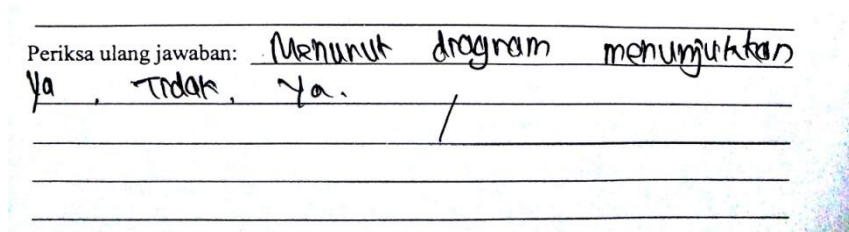 Periksa ulang jawaban: Menurut diagram menunjukkan
Ya, Tidak, Ya.